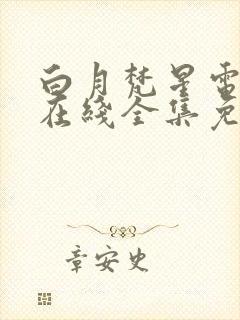 白月梵星電
在綫全集免
章安史